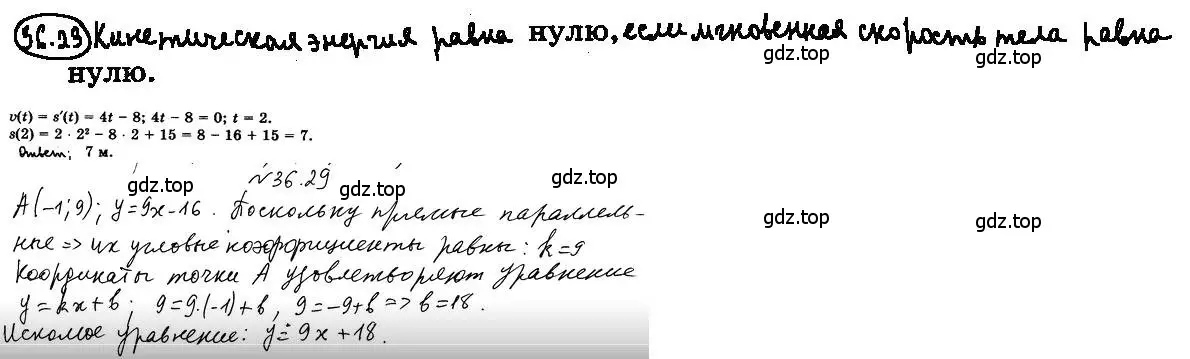 36.29 Кинетическая энергия равна нулю, если мгновенная скорость тела равна
нулю.
gdz.top
gdz.top
v(t) = s′(t) = 4t − 8; 4t − 8 = 0; t = 2.
s(2) = 2 · 2² − 8 · 2 + 15 = 8 − 16 + 15 = 7.
Ответ: 7 м.
№36.29
gdz.top
gdz.top
gdz.top
A(−1; 9); y=9x−16. Поскольку прямые параллель-
gdz.top
gdz.top
ные => их угловые коэффициенты равны: k=9
Координаты точки А удовлетворяют уравнение
y=kx+b; 9=9·(−1)+b, 9=−9+b => b=18.
Искомое уравнение: y=9x+18.